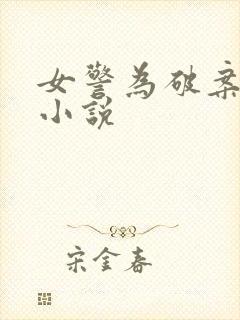 女警為破案
小說
宋金春